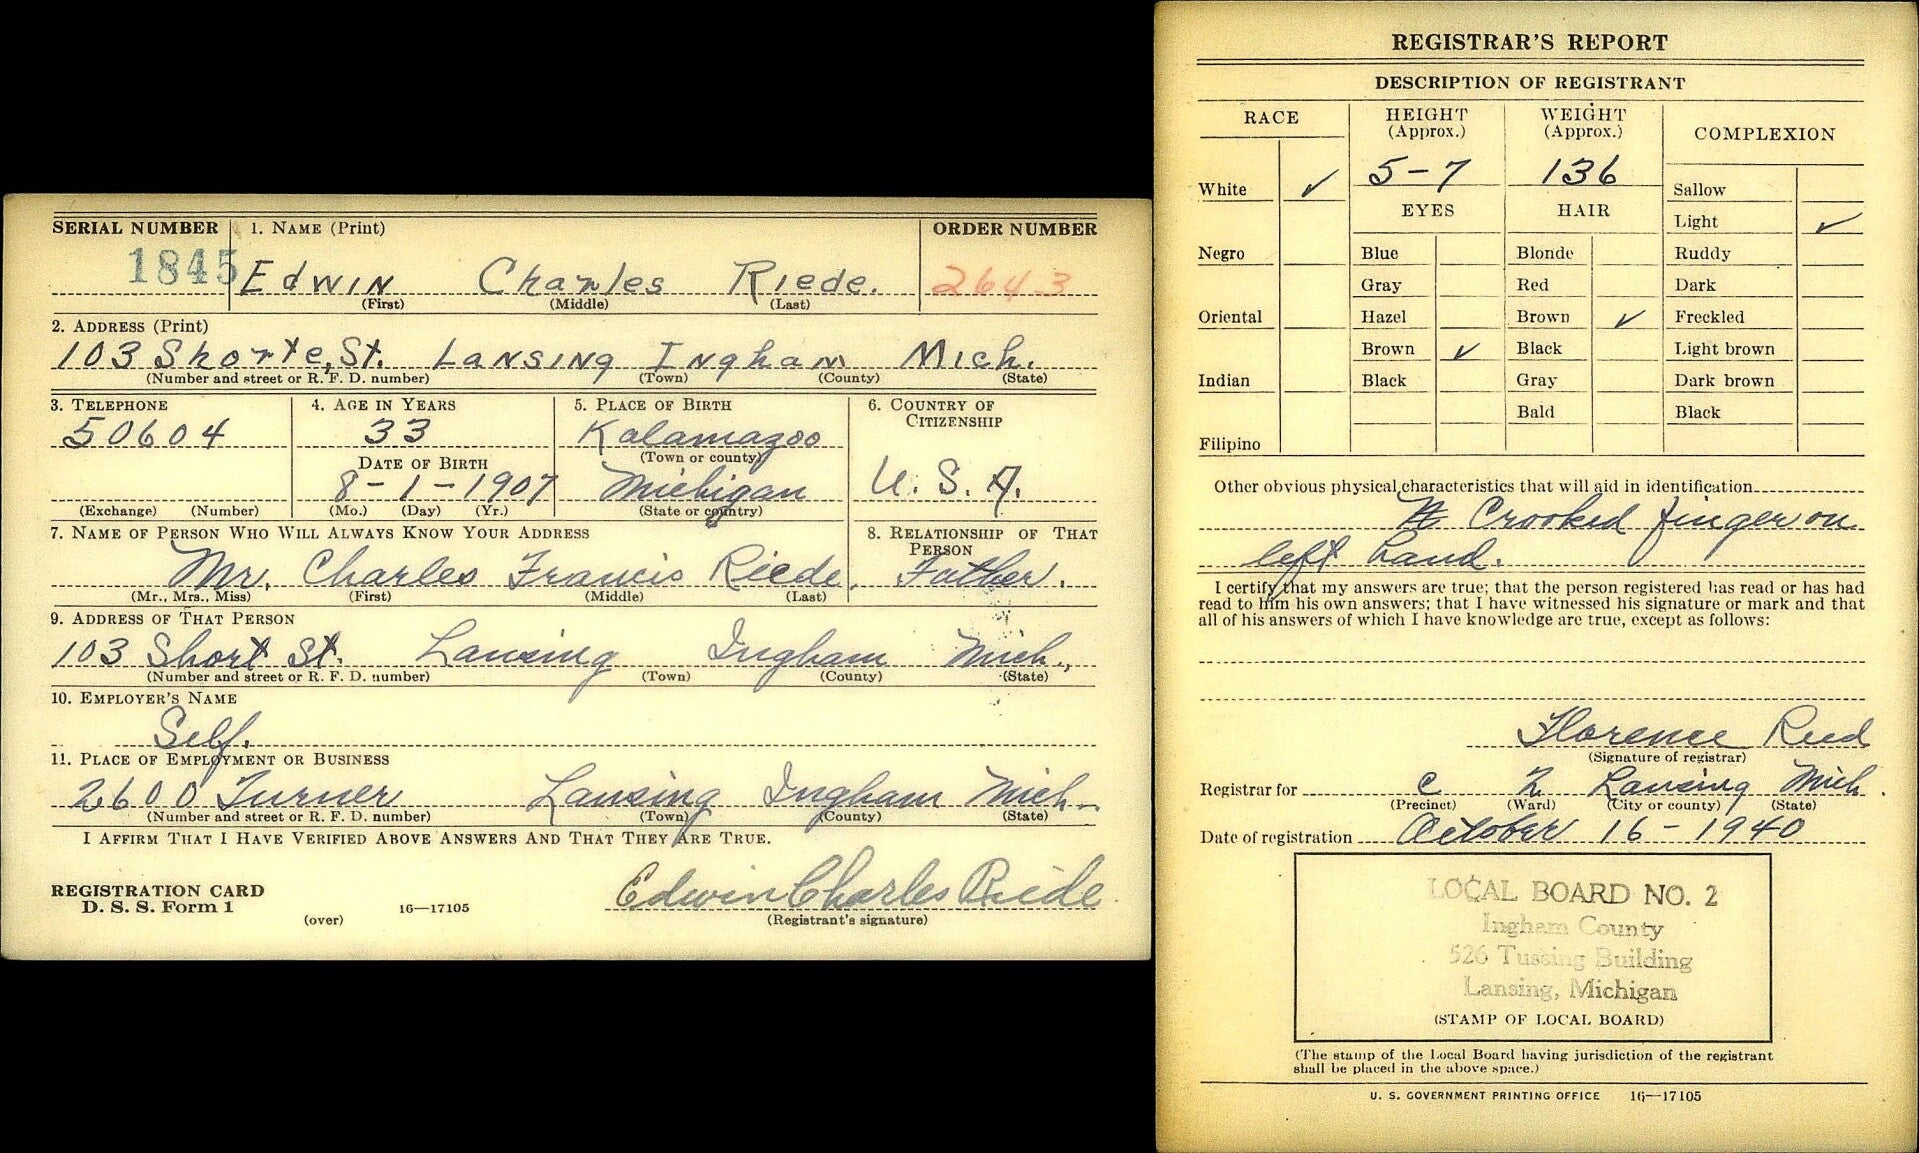 SERIAL NUMBER 1. NAME (Print) ORDER NUMBER
1845 Edwin Charles Riede. 2643
(First) (Middle) (Last)
2. ADDRESS (Print)
103 Shorte, St. Lansing Ingham Mich.
(Number and street or R. F. D. number) (Town) (County) (State)
3. TELEPHONE 4. AGE IN YEARS 5. PLACE OF BIRTH 6. COUNTRY OF CITIZENSHIP
50604 33 Kalamazoo
(Town or county)
DATE OF BIRTH
8-1-1907 Michigan U. S. A.
(Exchange) (Number) (Mo.) (Day) (Yr.) (State or country)
7. NAME OF PERSON WHO WILL ALWAYS KNOW YOUR ADDRESS 8. RELATIONSHIP OF THAT PERSON
Mr. Charles Francis Riede. Father.
(Mr., Mrs., Miss) (First) (Middle) (Last)
9. ADDRESS OF THAT PERSON
103 Short St. Lansing Ingham Mich.,
(Number and street or R. F. D. number) (Town) (County) (State)
10. EMPLOYER'S NAME
Self.
11. PLACE OF EMPLOYMENT OR BUSINESS
2600 Turner Lansing Ingham Mich-
(Number and street or R. F. D. number) (Town) (County) (State)
I AFFIRM THAT I HAVE VERIFIED ABOVE ANSWERS AND THAT THEY ARE TRUE.
REGISTRATION CARD
D. S. S. Form 1 Edwin Charles Riede
(over) 16—17105 (Registrant's signature)
REGISTRAR'S REPORT
DESCRIPTION OF REGISTRANT
RACE HEIGHT (Approx.) WEIGHT (Approx.) COMPLEXION
White ✓ 5-7 136 Sallow
EYES HAIR Light ✓
Negro Blue Blonde Ruddy
Gray Red Dark
Oriental Hazel Brown ✓ Freckled
Brown ✓ Black Light brown
Indian Black Gray Dark brown
Bald Black
Filipino
Other obvious physical characteristics that will aid in identification
Crooked finger on
left hand.
I certify that my answers are true; that the person registered has read or has had
read to him his own answers; that I have witnessed his signature or mark and that
all of his answers of which I have knowledge are true, except as follows:
Florence Reed
(Signature of registrar)
Registrar for C 2 Lansing Mich.
(Precinct) (Ward) (City or county) (State)
Date of registration October 16-1940
LOCAL BOARD NO. 2
Ingham County
526 Tussing Building
Lansing, Michigan
(STAMP OF LOCAL BOARD)
(The stamp of the Local Board having jurisdiction of the registrant
shall be placed in the above space.)
U. S. GOVERNMENT PRINTING OFFICE 16—17105